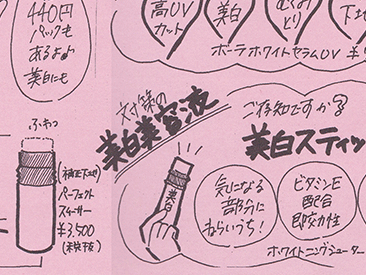 440円
パックも
あるよ♪
美白にも
高UV
カット
美白
むくみ
とり
下地
ポーラ ホワイトセラムUV ¥
対策の
美白美容液
ご存知ですか?
美白スティッ
ふわっ
(補正下地)
パーフェクト
スムーサー
¥3,500
(税抜)
美白
気になる
部分に
ねらいうち!
ビタミンE
配合
即効性
ホワイトニングシューター